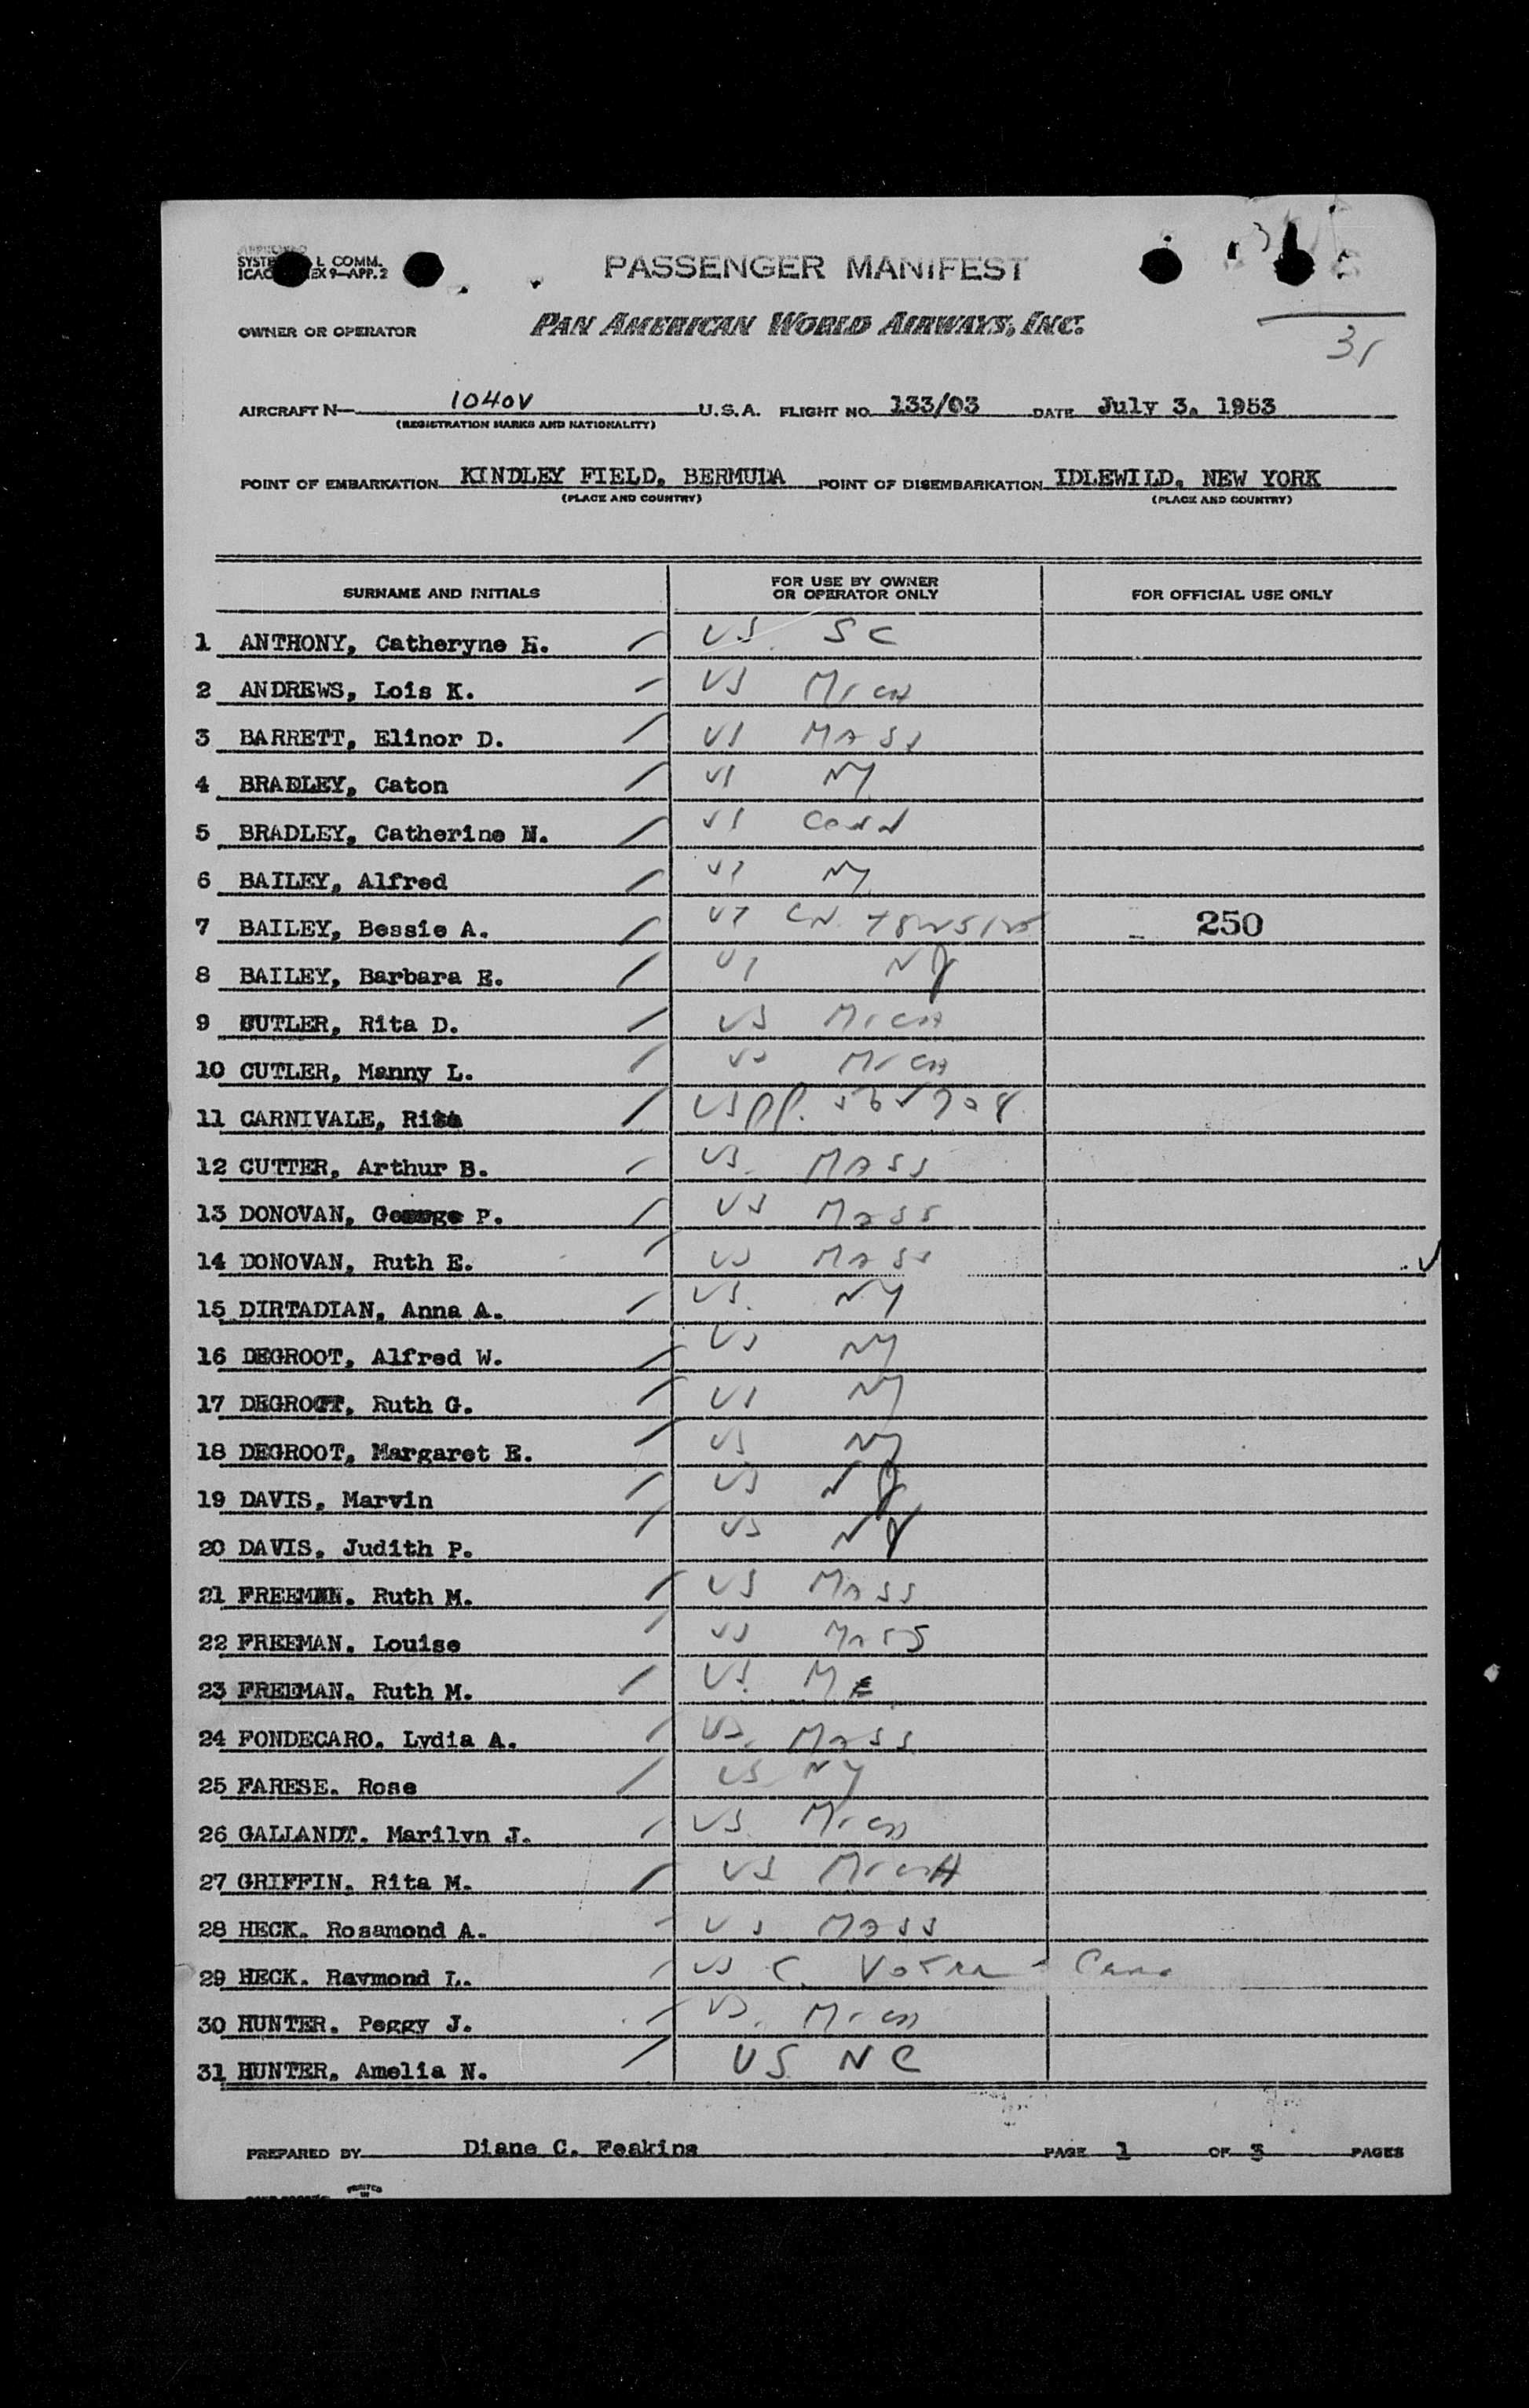 PASSENGER MANIFEST
L COMM.
9—APP.2
OWNER OR OPERATOR PAN AMERICAN WORLD AIRWAYS, INC.
31
AIRCRAFT N— 1040V U.S.A. FLIGHT NO. 133/03 DATE July 3, 1953
(REGISTRATION MARKS AND NATIONALITY)
POINT OF EMBARKATION KINDLEY FIELD, BERMUDA POINT OF DISEMBARKATION IDLEWILD, NEW YORK
(PLACE AND COUNTRY) (PLACE AND COUNTRY)
SURNAME AND INITIALS FOR USE BY OWNER OR OPERATOR ONLY FOR OFFICIAL USE ONLY
1 ANTHONY, Catheryne H. US SC
2 ANDREWS, Lois K. US Mich
3 BARRETT, Elinor D. US MASS
4 BRADLEY, Caton US NY
5 BRADLEY, Catherine N. US Conn
6 BAILEY, Alfred US NY
7 BAILEY, Bessie A. US CN 250
8 BAILEY, Barbara E. US NJ
9 CUTLER, Rita D. US Mich
10 CUTLER, Manny L. US Mich
11 CARNIVALE, Rita US PP.
12 CUTTER, Arthur B. US MASS
13 DONOVAN, George P. US MASS
14 DONOVAN, Ruth E. US MASS
15 DIRTADIAN, Anna A. US NY
16 DEGROOT, Alfred W. US NY
17 DEGROOT, Ruth G. US NY
18 DEGROOT, Margaret E. US NY
19 DAVIS, Marvin US NJ
20 DAVIS, Judith P. US NJ
21 FREEMAN, Ruth M. US MASS
22 FREEMAN, Louise US MASS
23 FREEMAN, Ruth M. US ME
24 FONDECARO, Lydia A. US MASS
25 FARESE, Rose US NY
26 GALLANDT, Marilyn J. US Mich
27 GRIFFIN, Rita M. US Mich
28 HECK, Rosamond A. US MASS
29 HECK, Raymond L. US C. Voter Card
30 HUNTER, Peggy J. US Mich
31 HUNTER, Amelia N. US NC
PREPARED BY Diane C. Feakins PAGE 1 OF 3 PAGES